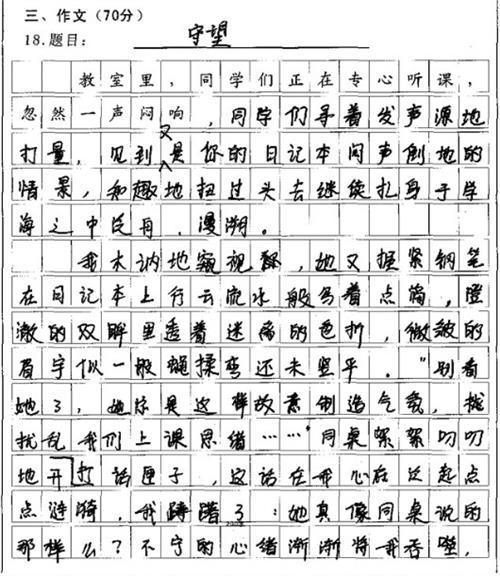 三、作文（70分）
18.题目： 守望
教室里，同学们正在专心听课，
忽然一声闷响，同学们寻着发声源地
打量，见到又是你的日记本闷声倒地的
情景，知趣地扭过头去继续扎身于学
海之中泛舟、漫溯。
我木讷地窥视 ，她又握紧钢笔
在日记本上行云流水般写着点滴，澄
澈的双眸里透着迷离的色折，微皱的
眉宇似一般 揉弯还未竖平。“别看
她了，她总是这样故意制造气氛，搅
扰乱我们上课思绪……”同桌絮絮叨叨
地开打话匣子，这话在我心在泛起点
点涟漪，我踌躇了：她真像同桌说的
那样么？不宁的心绪渐渐将我吞噬，